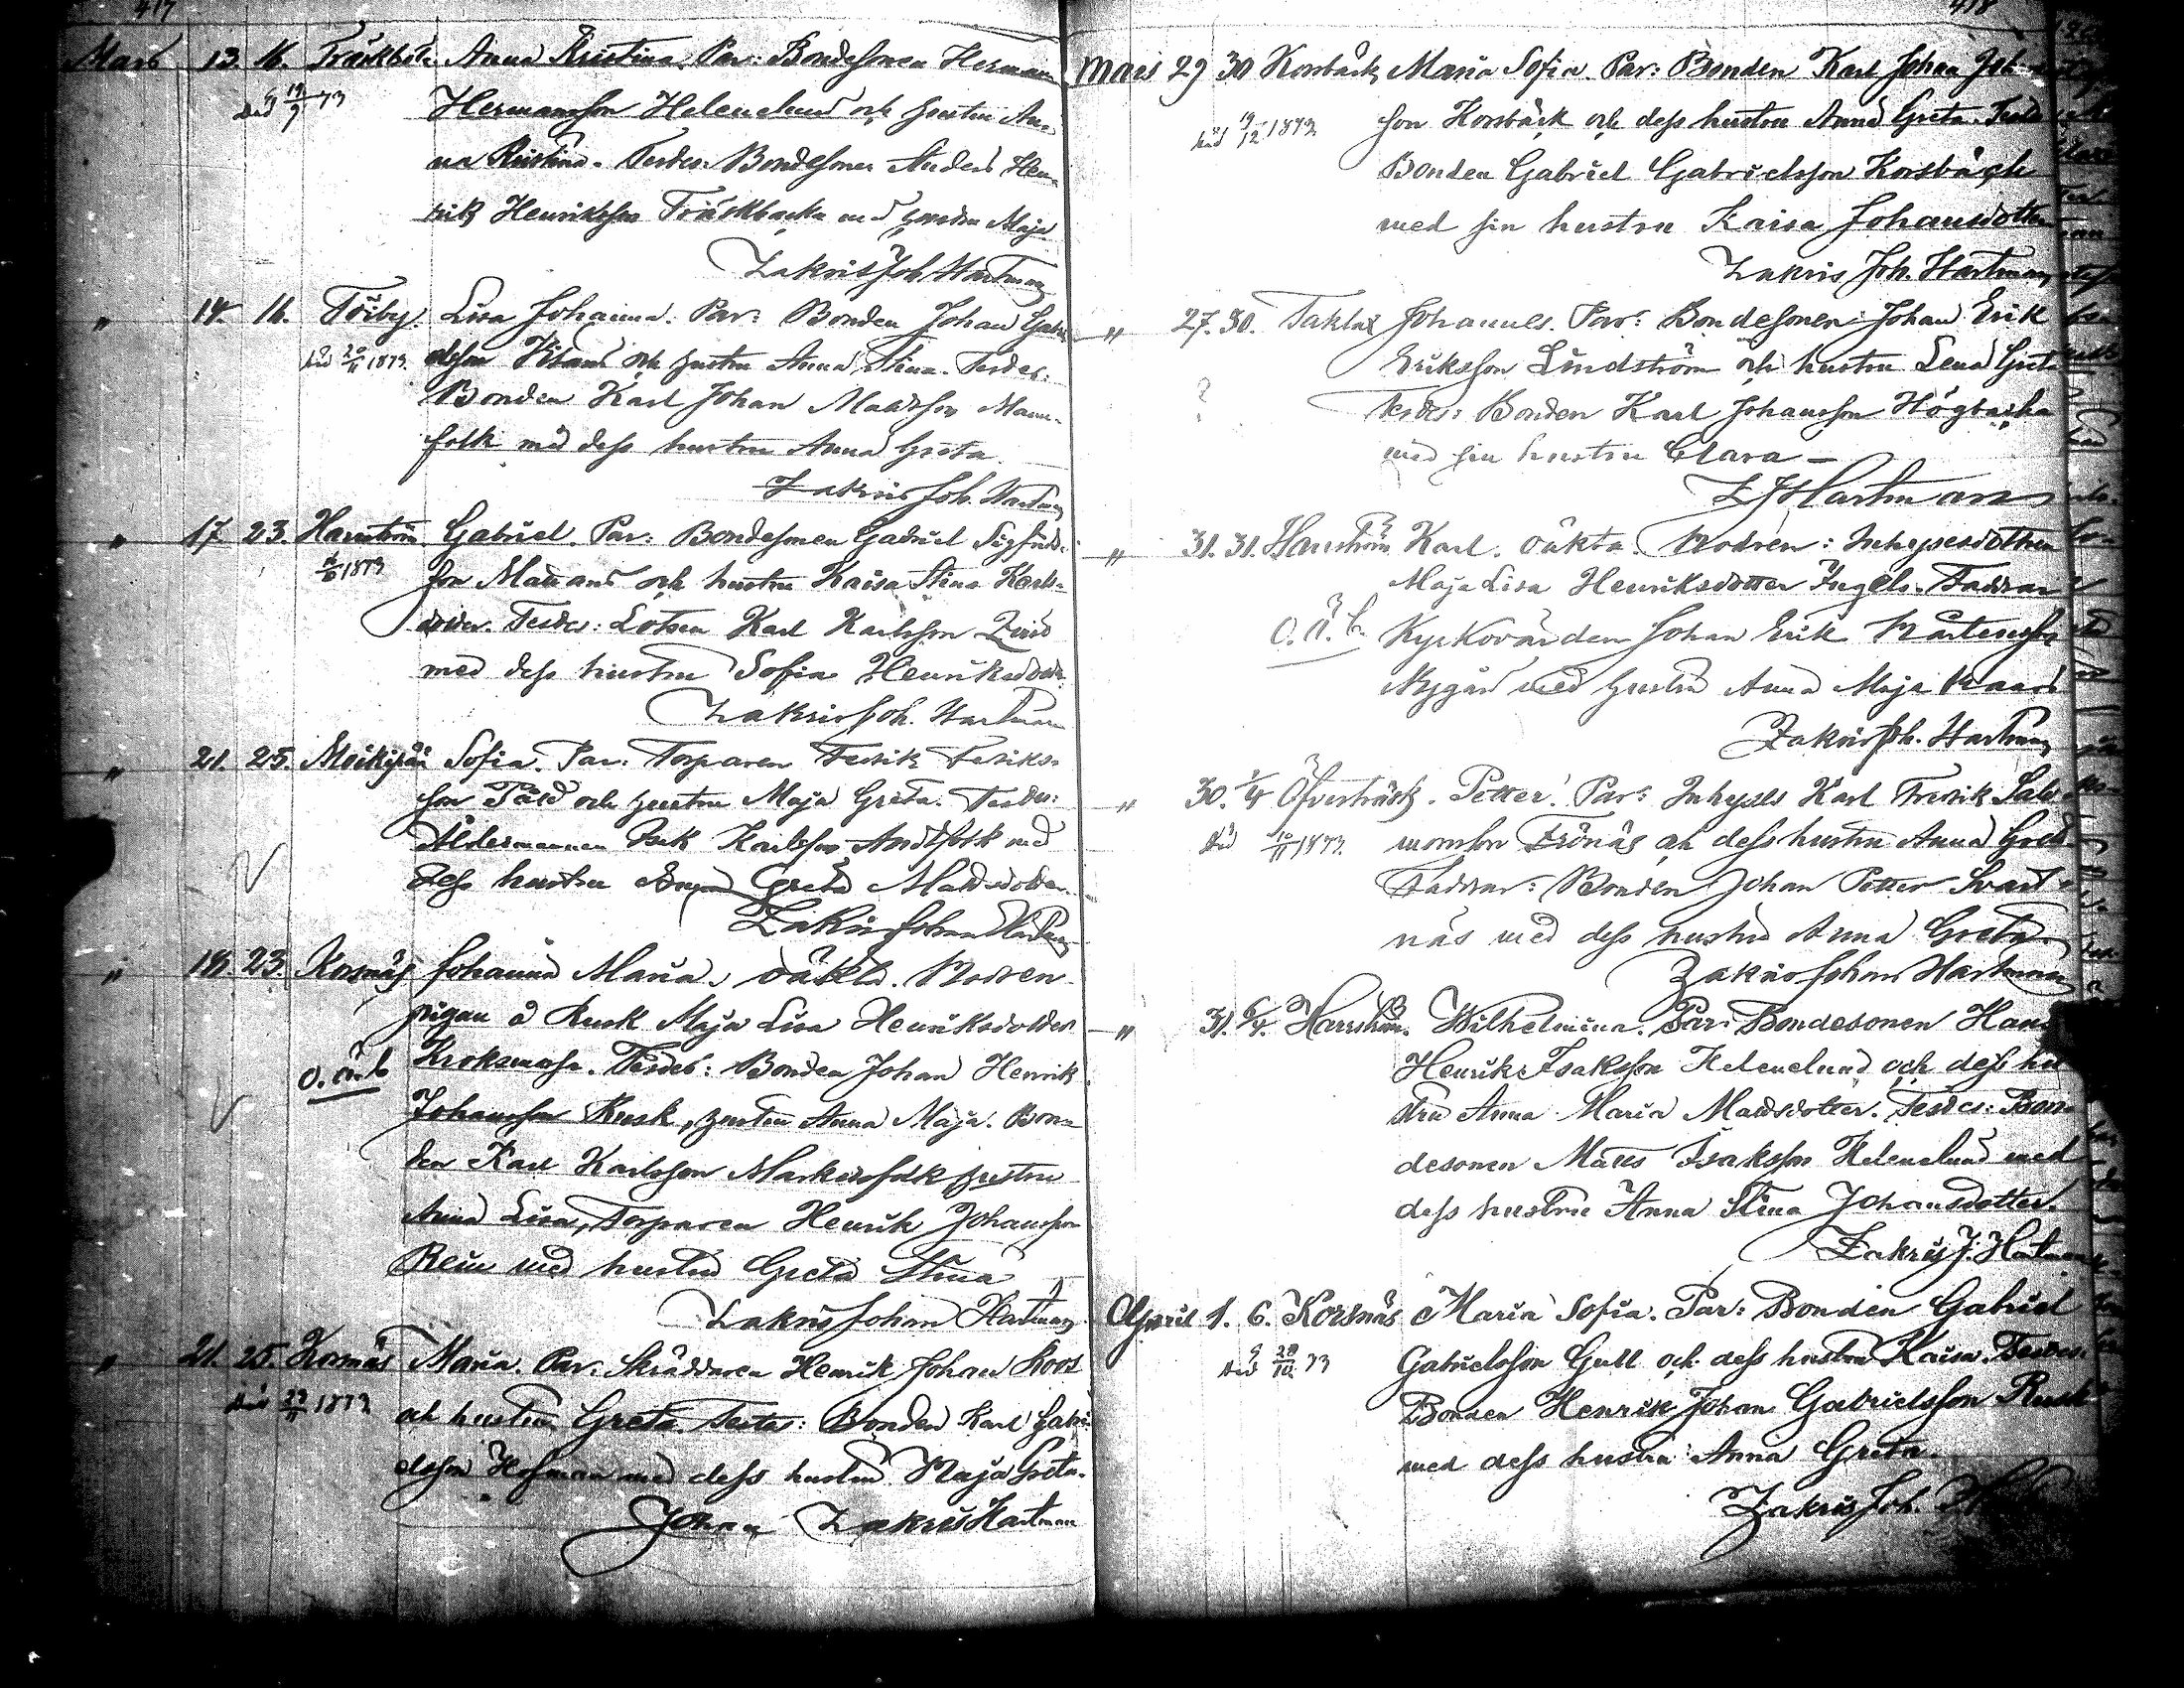 417
Mars 13. 16. Träskböle Anna Kristina. Par: Bondesonen Herman
död 19/9 73 Hermansson Helenelund och hustru An-
na Kristina. Testes: Bondesonen Anders Hen-
rik Henriksson Träskbacka med hustru Maja
Zakris Joh. Hartman
" 14. 16. Töiby. Lisa Johanna. Par: Bonden Johan Gabri-
död 20/11 1873. elsson och hustru Anna Stina. Testes:
Bonden Karl Johan Mattsson Mann-
folk med dess hustru Anna Greta
Zakris Joh. Hartman
" 17. 23. Harrström Gabriel. Par: Bondesonen Gabriel Sigfrids-
1873 son och hustru Kaisa Stina Karls-
dotter. Testes: Lotsen Karl Karlsson
med dess hustru Sofia Henriksdotter
Zakris Joh. Hartman
" 21. 25. Moikipää Sofia. Par: Torparen Fredrik Fredriks-
son och hustru Maja Greta. Testes:
Åldermannen Karlsson med
dess hustru Greta Mattsdotter
Zakris Johan Hartman
" 18. 23. Korsnäs Johanna Maria, oäkta. Modren
pigan å Rusk Maja Lisa Henriksdotter
o. ä. b Kroksmosa. Testes: Bonden Johan Henrik
Johansson Rusk, hustru Anna Maja. Bon-
den Karl Karlsson hustru
Anna Lisa, Torparen Henrik Johansson
Rein med hustru Greta Stina
Zakris Johan Hartman
" 21. 25. Korsnäs Maria. Par: Skräddaren Henrik Johan Roos
död 29/11 1873 och hustru Greta. Testes: Bonden Karl Gabri-
elsson Hofman med dess hustru Maja Greta.
Johan Zakris Hartman
418
Mars 29 30 Korsbäck Maria Sofia. Par: Bonden Karl Johan Joh
död 19/12 1873 son Korsbäck och dess hustru Anna Greta. Test
Bonden Gabriel Gabrielsson Korsbäck
med sin hustru Kaisa Johansdotter
Zakris Joh. Hartman
" 27. 30. Taklax Johannes. Par: Bondesonen Johan Erik
Eriksson Lindström och hustru Lena Greta
? Testes: Bonden Karl Johansson Högbacka
med sin hustru Clara —
Z J Hartman
" 31. 31. Harrström Karl. oäkta. Modren: Inhysesdottren
Maja Lisa Henriksdotter Ingels. Faddrar
O. ä. b. Kyrkovärden Johan Erik Mårtensson
Nygård med hustru Anna Maja
Zakris Joh. Hartman
" 30. 1/4 Öfverträsk. Petter. Par: Inhyses Karl Fredrik Salo-
död 10/11 1873. monson Frönäs och dess hustru Anna Greta
Faddrar: Bonden Johan Petter Svart-
näs med dess hustru Anna Greta
Zakris Johan Hartman
" 31. 6/4. Harrström. Wilhelmina. Par: Bondesonen Hans
Henrik Isaksson Helenelund och dess hu
stru Anna Maria Mattsdotter. Testes: Bon-
desonen Matts Isaksson Helenelund med
dess hustru Anna Stina Johansdotter.
Zakris J. Hartman
April 1. 6. Korsnäs Maria Sofia. Par: Bonden Gabriel
död 28/10 73 Gabrielsson Gull och dess hustru Kaisa. Testes:
Bonden Henrik Johan Gabrielsson Rusk
med dess hustru Anna Greta
Zakris Joh.